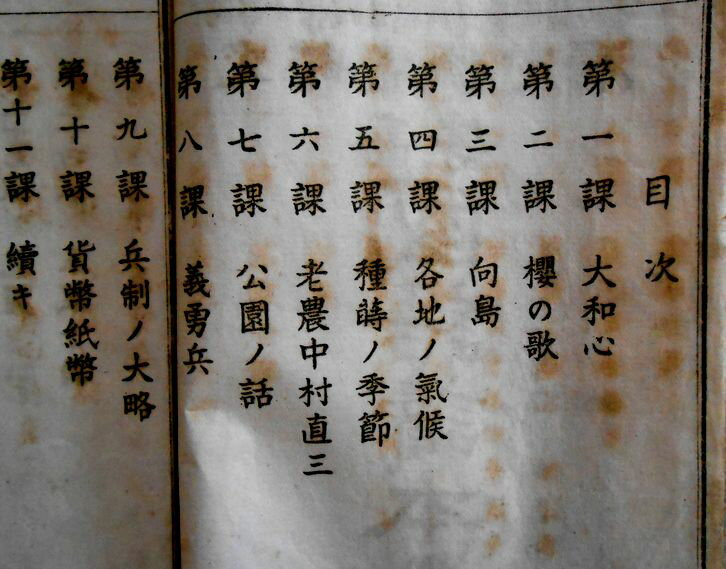 目次
第一課 大和心
第二課 櫻の歌
第三課 向島
第四課 各地ノ氣候
第五課 種蒔ノ季節
第六課 老農中村直三
第七課 公園ノ話
第八課 義勇兵
第九課 兵制ノ大略
第十課 貨幣紙幣
第十一課 續キ